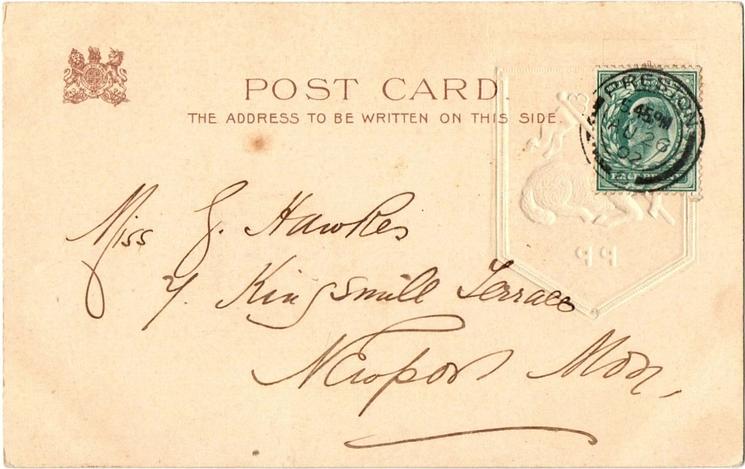 POST CARD.
THE ADDRESS TO BE WRITTEN ON THIS SIDE.
PRESTON
5.45 PM
AU 26
02
HALFPENNY
PP
Miss J. Hawkes
7. Kingsmill Terrace
Newport Mon,